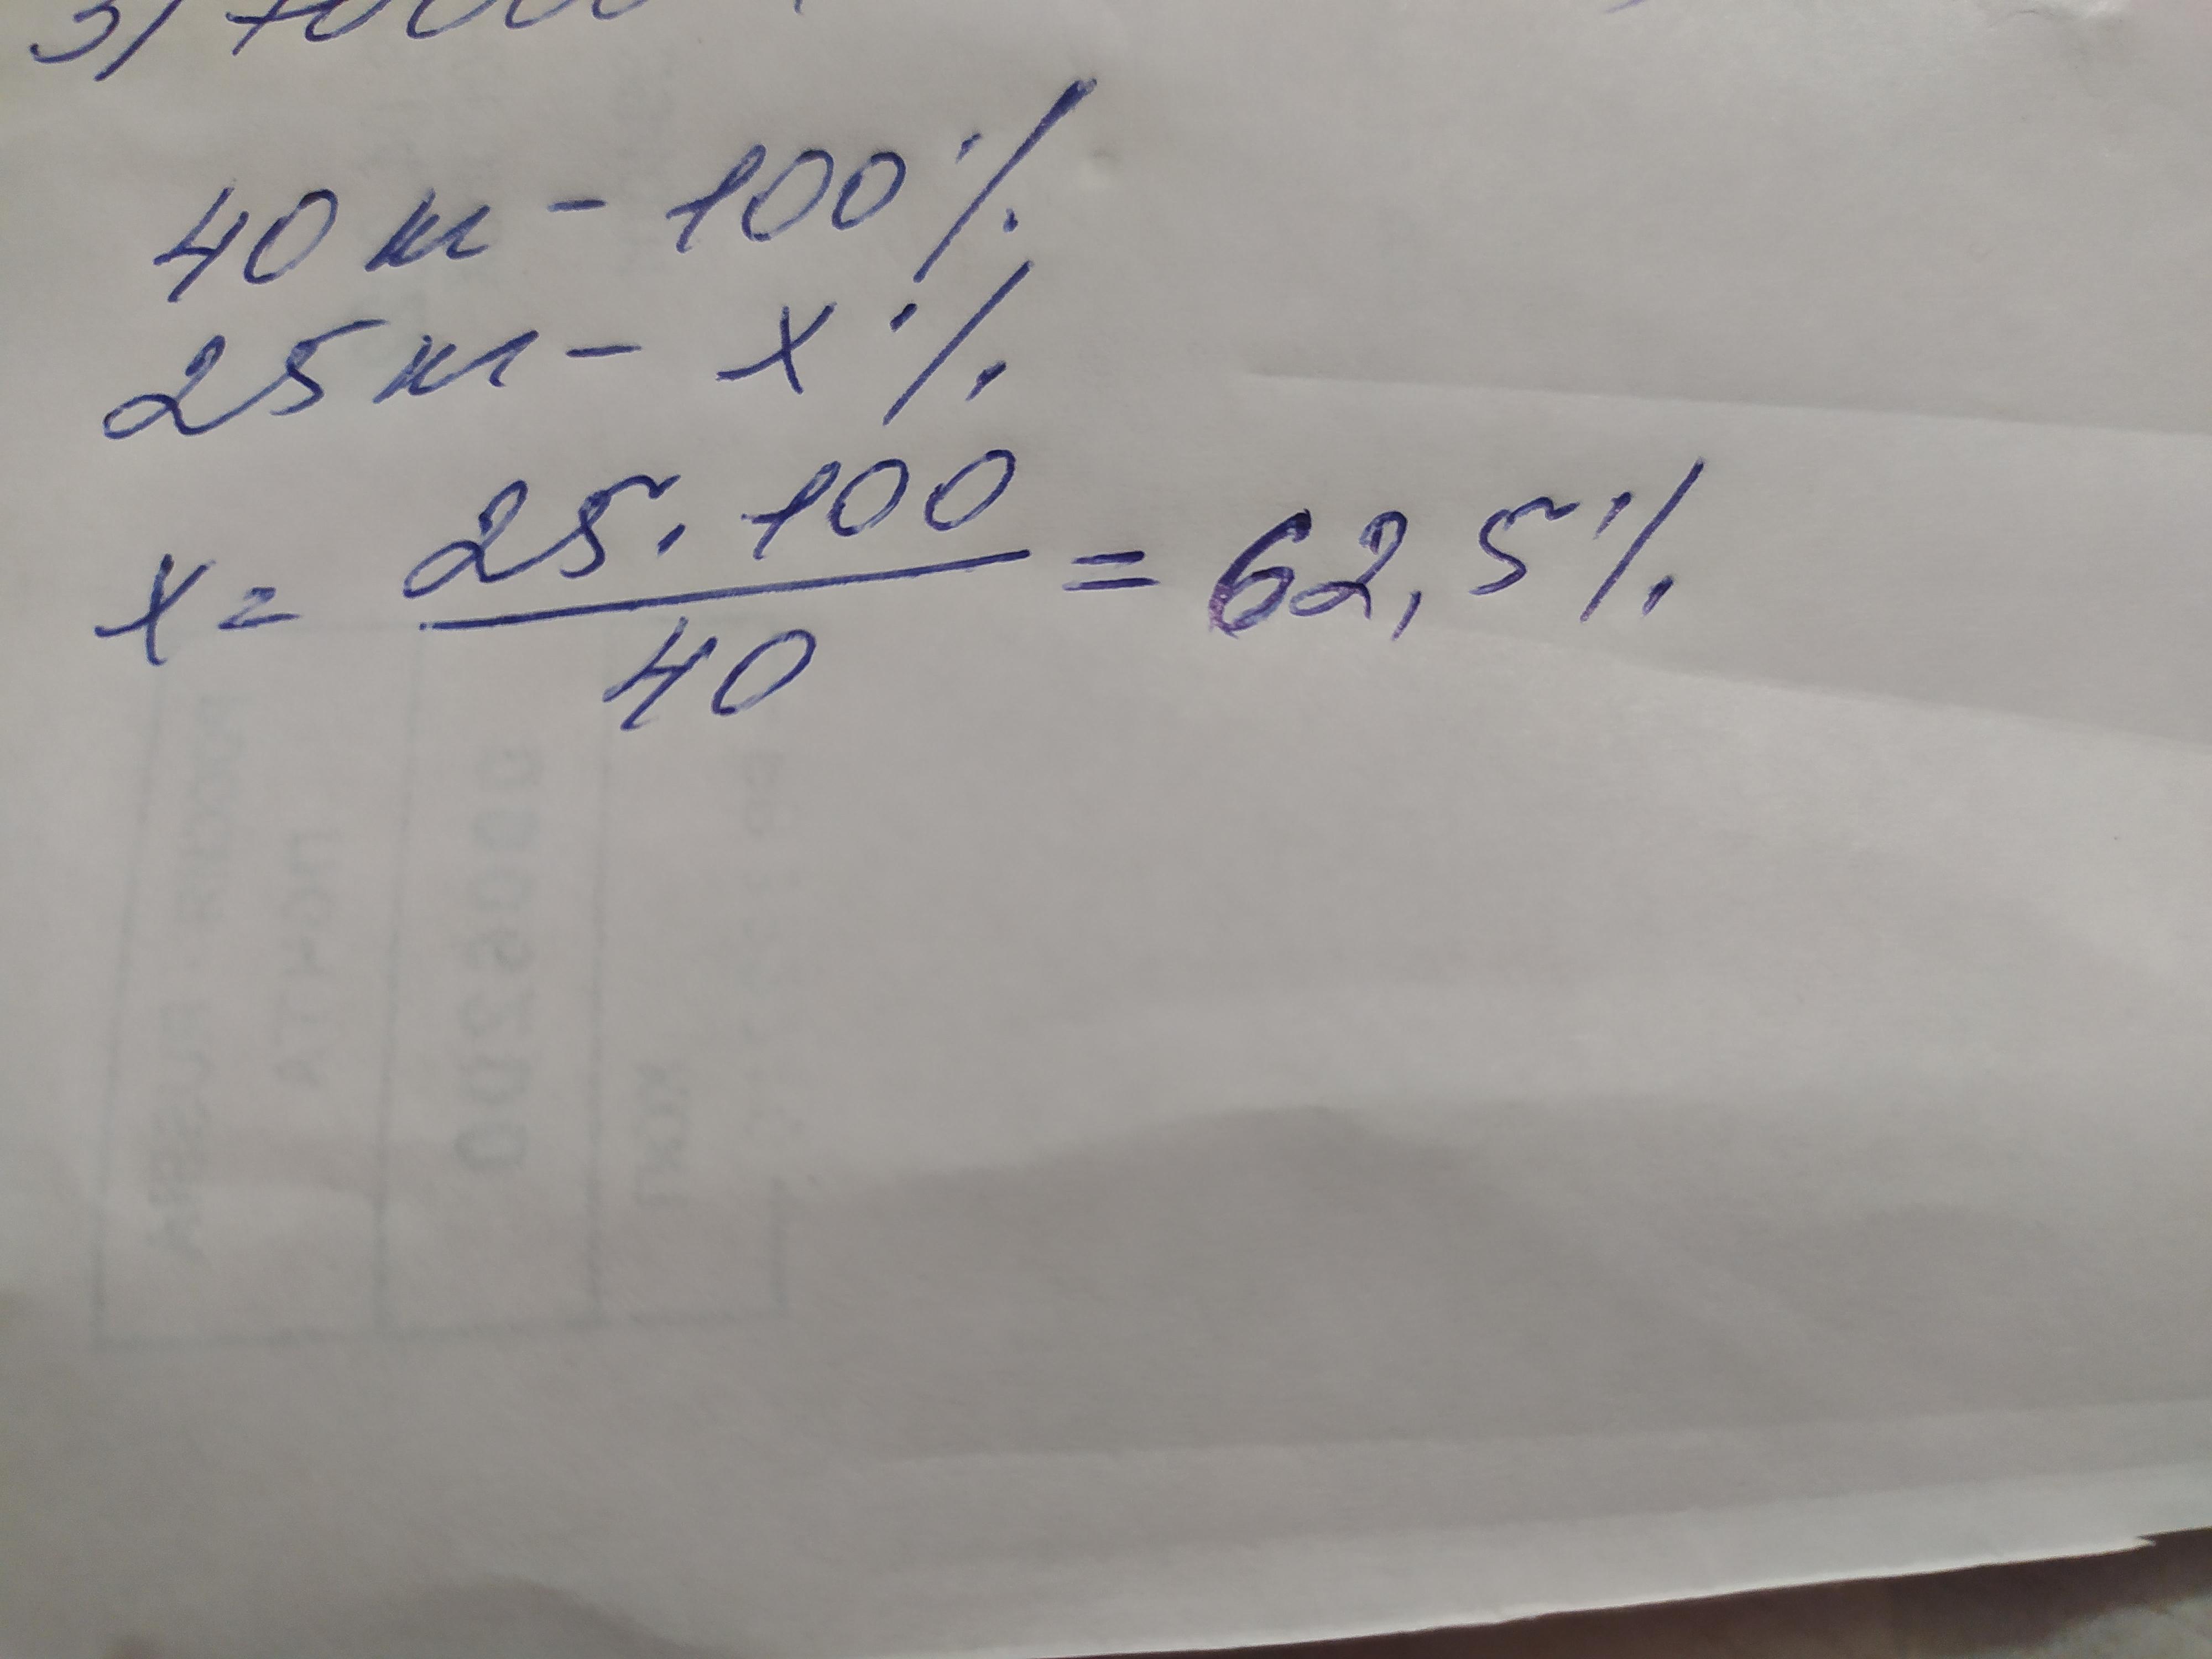 40 м - 100%
25 м - x%
x = 25 · 100 / 40 = 62,5%